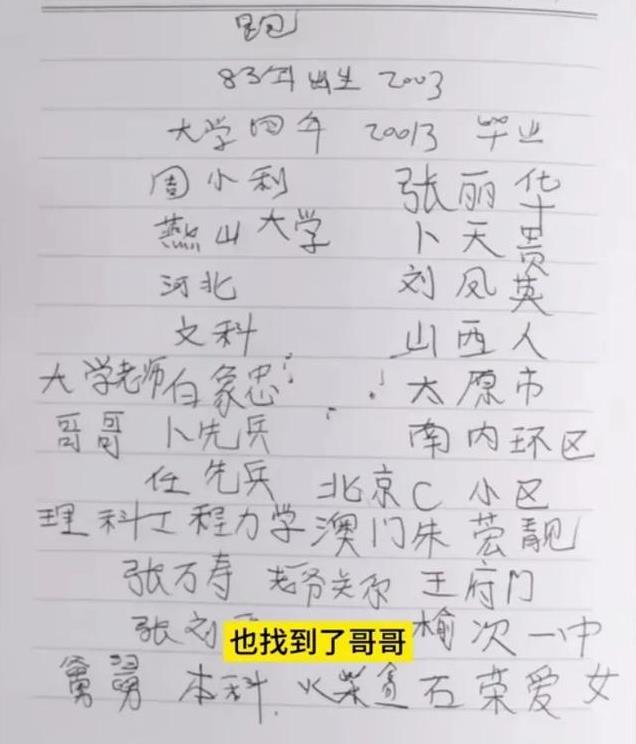 83年出生 2003
大学四年 20013 毕业
周小利 张丽华
燕山大学 卜天贵
河北 刘凤英
文科 山西人
大学老师 白象忠 太原市
哥哥 卜先兵 南内环区
任先兵 北京C小区
理科工程力学 澳门朱 靓
张万寿 关系 王府门
张刘 榆次一中
也找到了哥哥
舅舅 本科 火柴盒 石荣爱 女